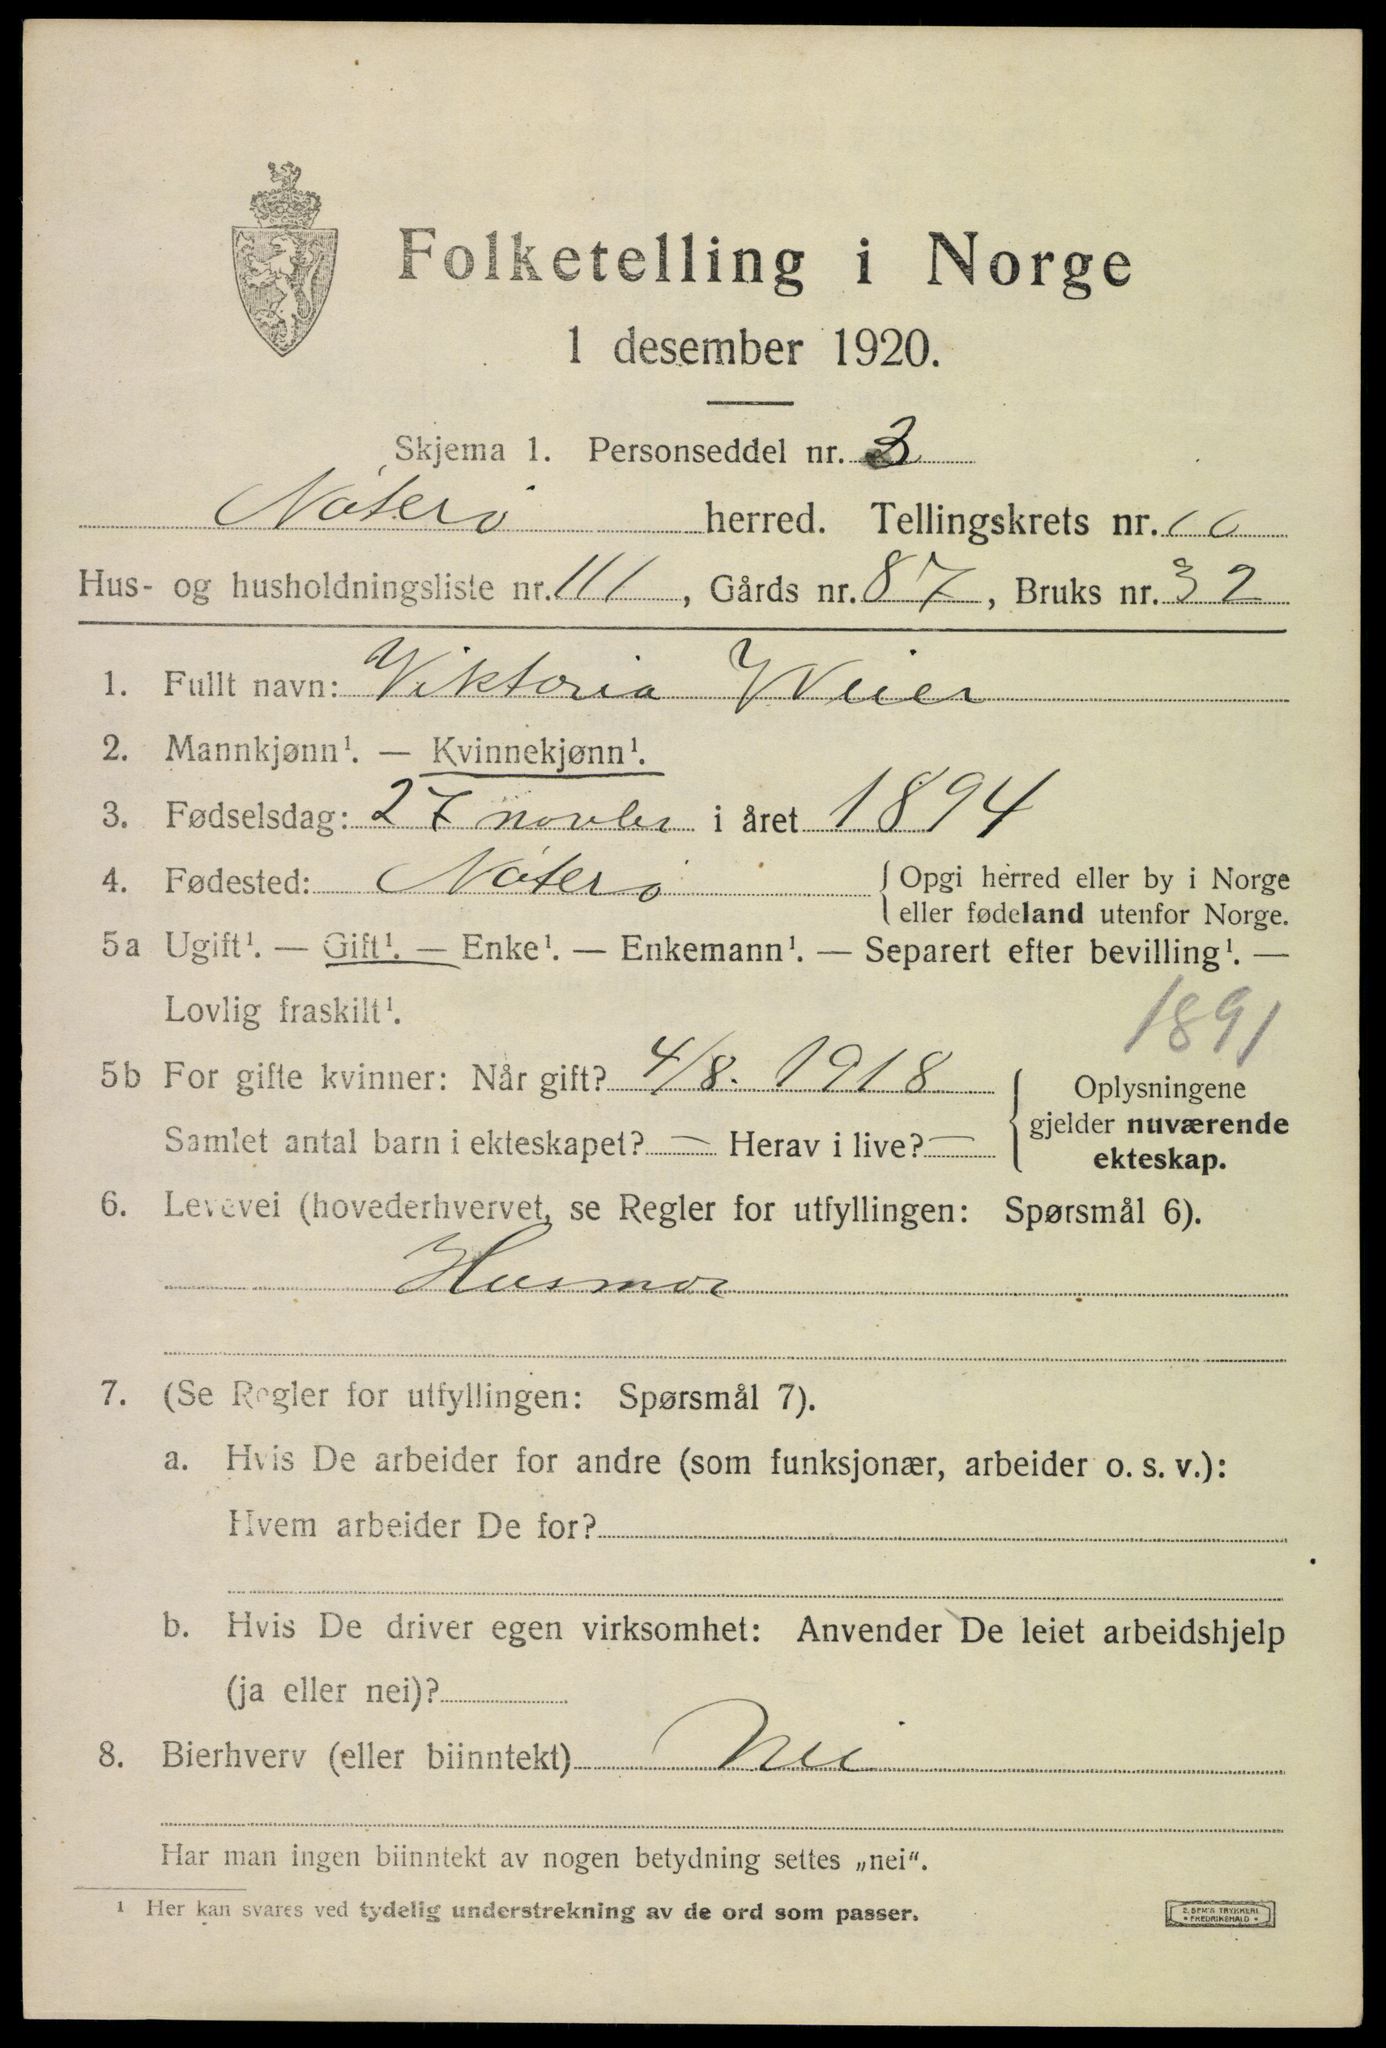 Folketelling i Norge
1 desember 1920.
Skjema 1. Personseddel nr. 3
Nøterø herred. Tellingskrets nr. 10
Hus- og husholdningsliste nr. 111, Gårds nr. 87, Bruks nr. 32
1. Fullt navn: Viktoria Weier
2. Mannkjønn¹. — Kvinnekjønn¹.
3. Fødselsdag: 27 novbr i året 1894
4. Fødested: Nøterø { Opgi herred eller by i Norge
eller fødeland utenfor Norge.
5a Ugift¹. — Gift¹. — Enke¹. — Enkemann¹. — Separert efter bevilling¹. —
Lovlig fraskilt¹.
1891
5b For gifte kvinner: Når gift? 4/8. 1918
Samlet antal barn i ekteskapet? — Herav i live? —
{ Oplysningene
gjelder nuværende
ekteskap.
6. Levevei (hovederhvervet, se Regler for utfyllingen: Spørsmål 6).
Husmor
7. (Se Regler for utfyllingen: Spørsmål 7).
a. Hvis De arbeider for andre (som funksjonær, arbeider o. s. v.):
Hvem arbeider De for?
b. Hvis De driver egen virksomhet: Anvender De leiet arbeidshjelp
(ja eller nei)?
8. Bierhverv (eller biinntekt) Nei
Har man ingen biinntekt av nogen betydning settes „nei“.
¹ Her kan svares ved tydelig understrekning av de ord som passer.
E. SEM'S TRYKKERI
• FREDRIKSHALD •